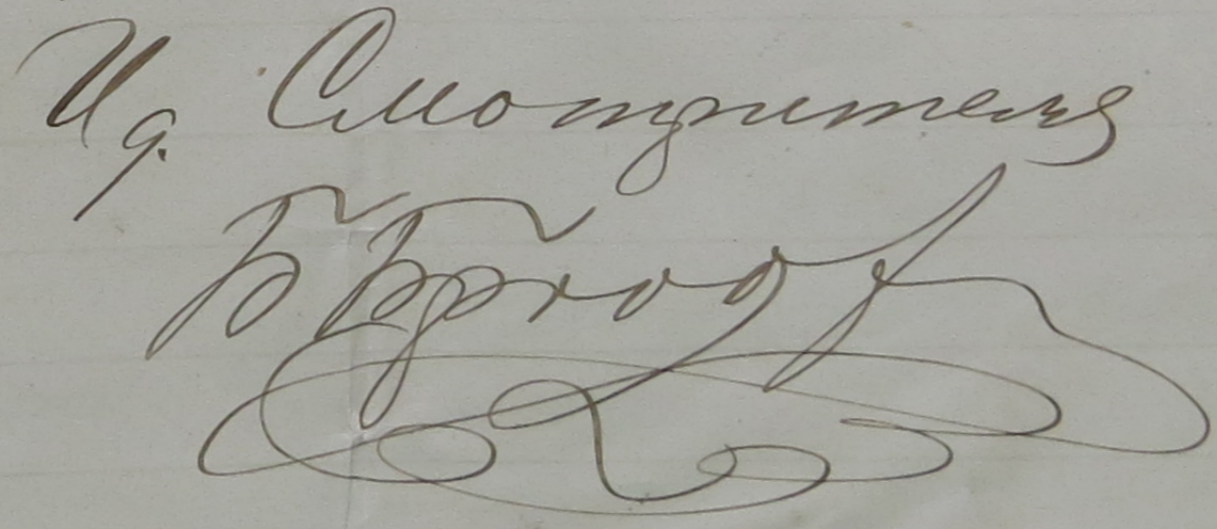 И д. Смотрителя
Б